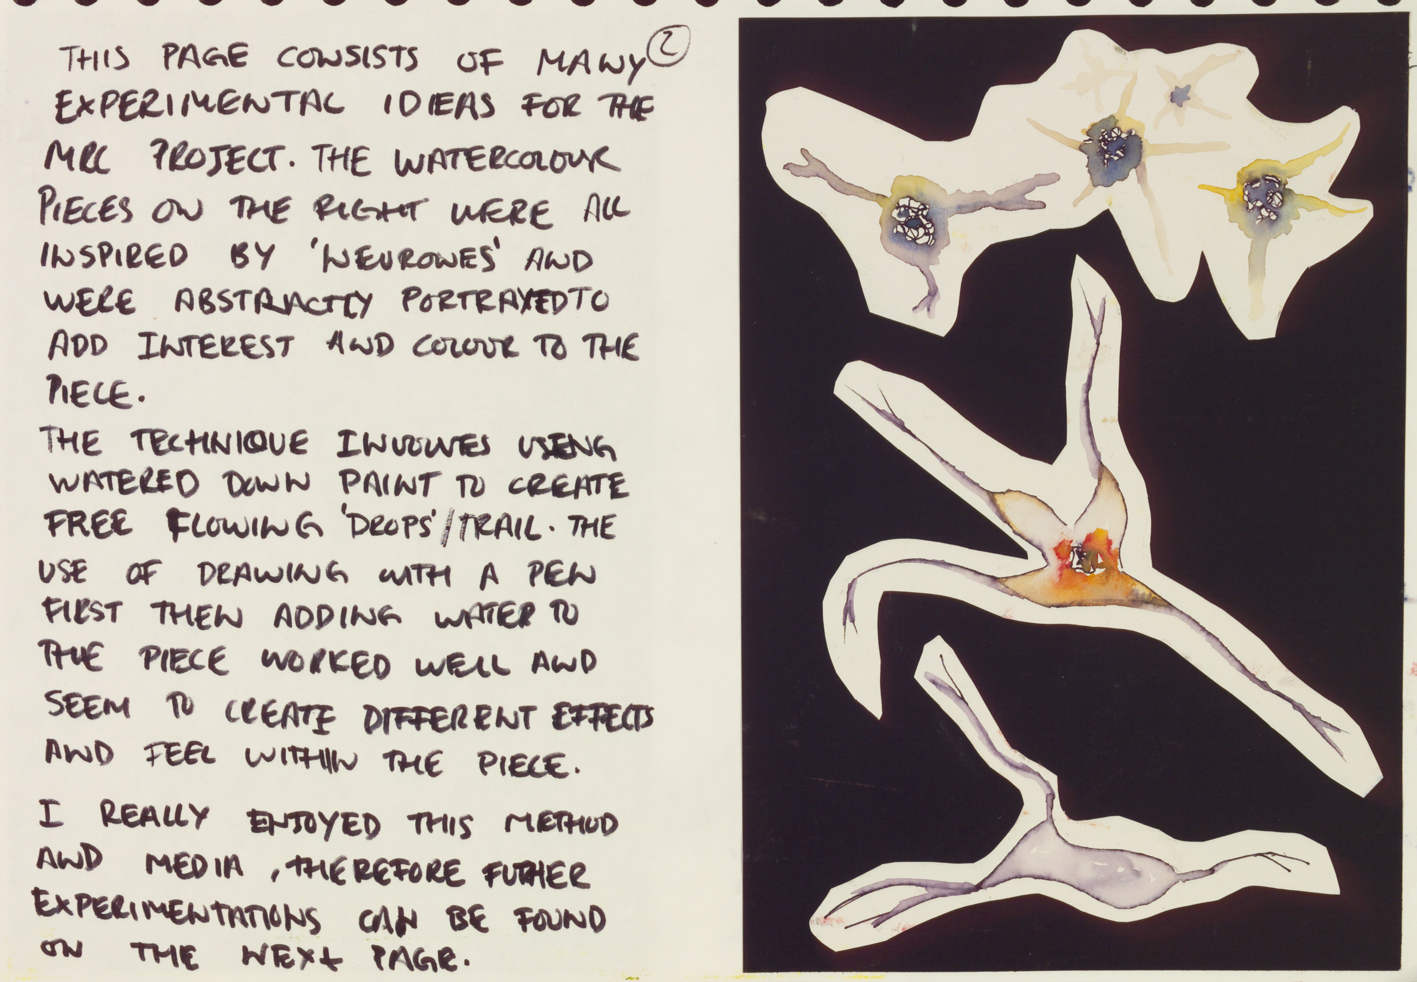 THIS PAGE CONSISTS OF MANY 2
EXPERIMENTAL IDEAS FOR THE
MRC PROJECT. THE WATERCOLOUR
PIECES ON THE RIGHT WERE ALL
INSPIRED BY 'NEURONES' AND
WERE ABSTRACTLY PORTRAYED TO
ADD INTEREST AND COLOUR TO THE
PIECE.
THE TECHNIQUE INVOLVES USING
WATERED DOWN PAINT TO CREATE
FREE FLOWING 'DROPS'/TRAIL. THE
USE OF DRAWING WITH A PEN
FIRST THEN ADDING WATER TO
THE PIECE WORKED WELL AND
SEEM TO CREATE DIFFERENT EFFECTS
AND FEEL WITHIN THE PIECE.
I REALLY ENJOYED THIS METHOD
AND MEDIA, THEREFORE FUTHER
EXPERIMENTATIONS CAN BE FOUND
ON THE NEXt PAGE.